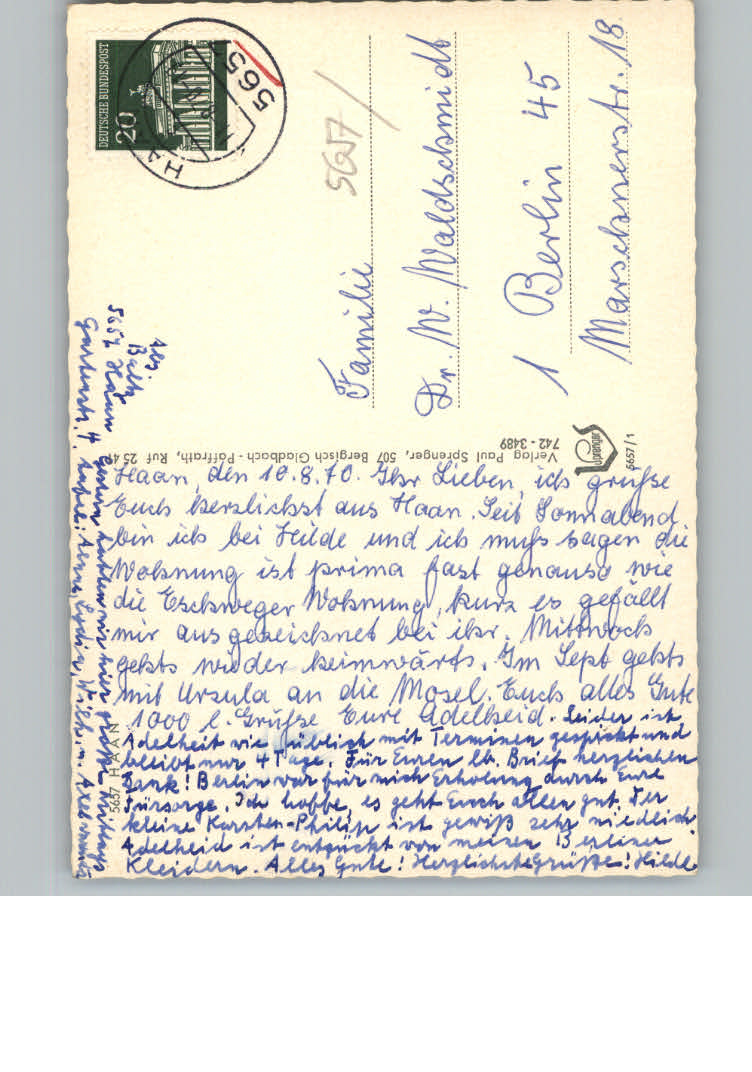 DEUTSCHE BUNDESPOST
20
565
HA
5657
Familie
Dr. W. Waldschmidt
1 Berlin 45
Marschnerstr. 18
Abs.
Baltz
5657 Haan
Gartenstr. 4
Verlag Paul Sprenger, 507 Bergisch Gladbach - Paffrath, Ruf 25 47
742 - 3489
Sprenger
5657/1
5657 HAAN
Haan, den 10.8.70. Ihr Lieben, ich grüße
Euch herzlichst aus Haan. Seit Sonnabend
bin ich bei Hilde und ich muß sagen die
Wohnung ist prima fast genauso wie
die Eschweger Wohnung, kurz es gefällt
mir ausgezeichnet bei ihr. Mittwoch
gehts wieder heimwärts. Im Sept gehts
mit Ursula an die Mosel. Euch alles Gute
1000 l. Grüße Eure Adelheid. Leider ist
Adelheit wie üblich mit Terminen gespickt und
bleibt nur 4 Tage. Für Euren lb. Brief herzlichen
Dank! Berlin war für mich Erholung durch Eure
Fürsorge. Ich hoffe, es geht Euch allen gut. Der
kleine Karsten-Philip ist gewiß sehr niedlich.
Adelheid ist entzückt von meinen Berliner
Kleidern. Alles Gute! Herzlichste Grüße! Hilde
Gestern hatten wir hier